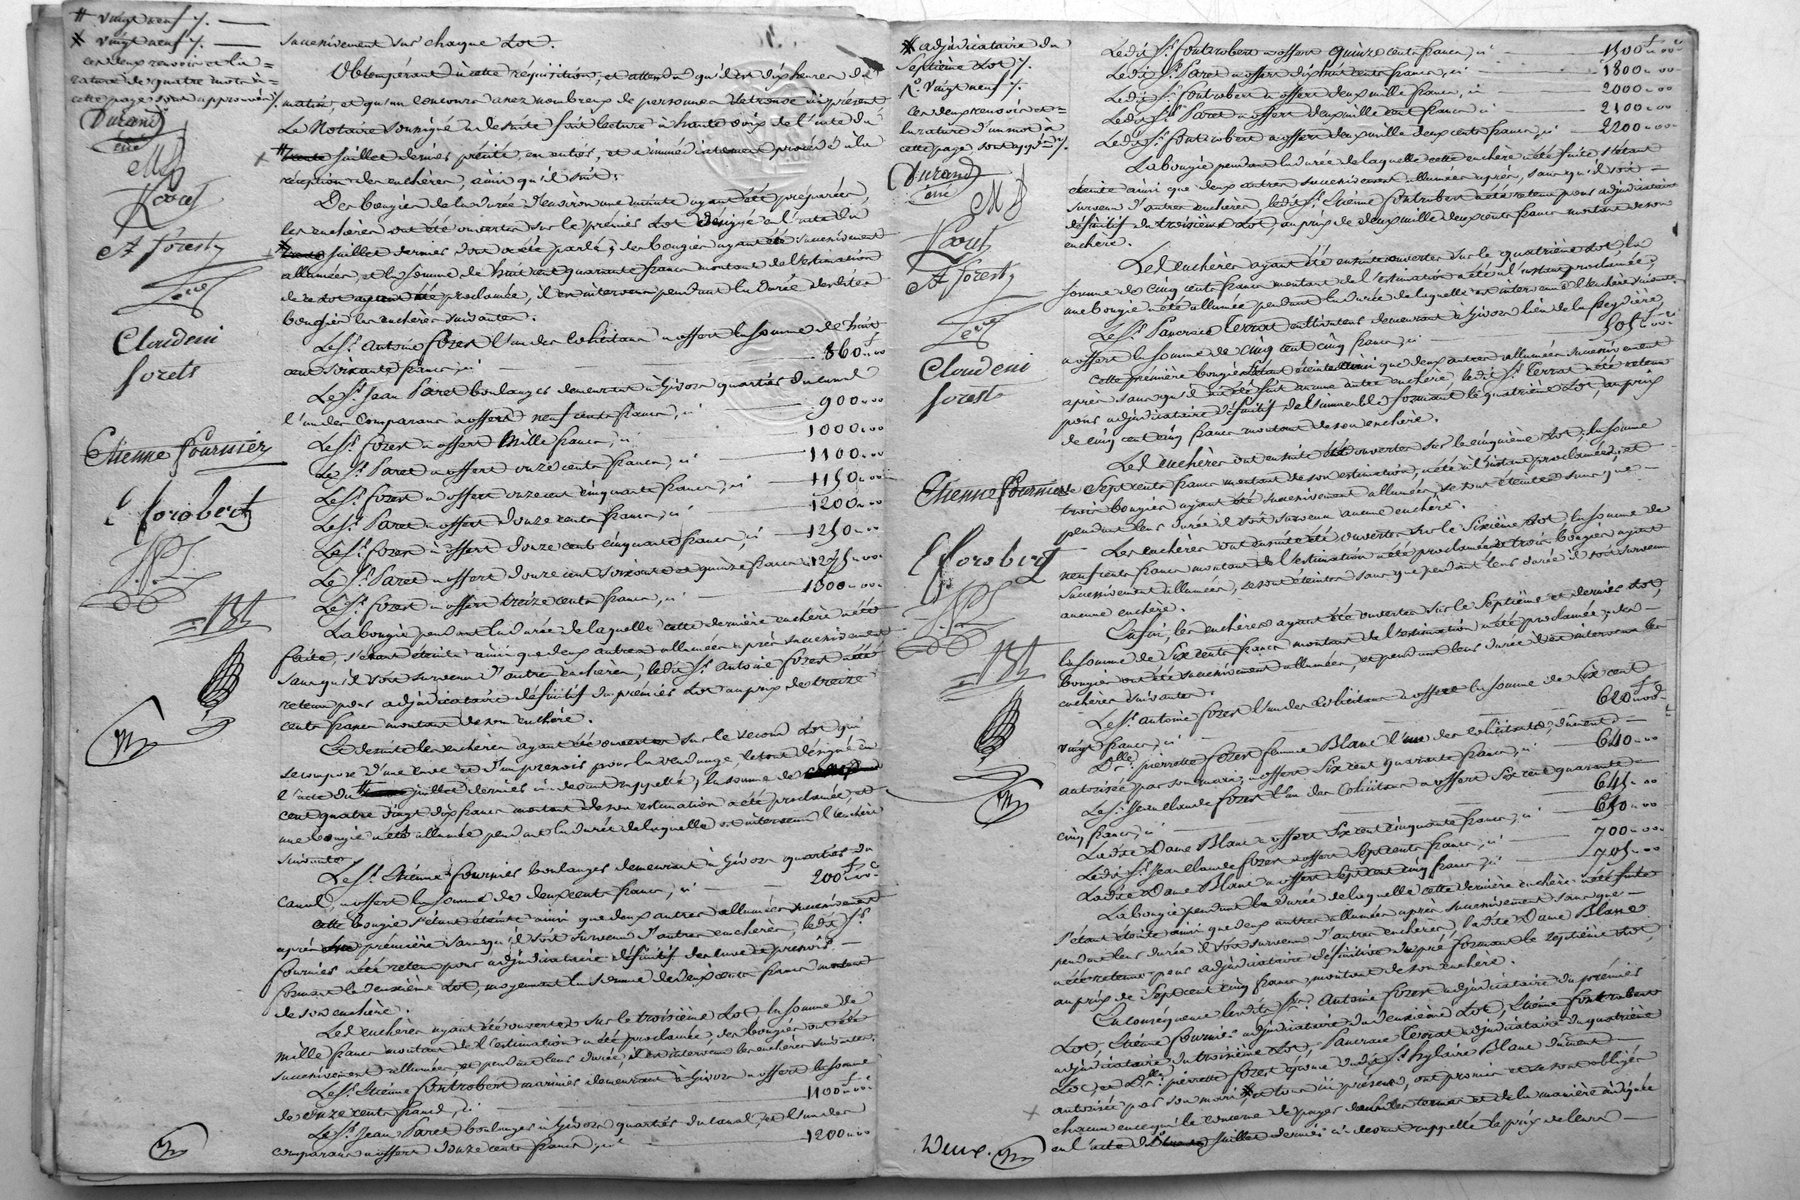 # vingt neuf /.
* vingt neuf /.
ces deux renvois et la
rature de quatre mots à
cette page sont approuvés /.
Durand
Forest
At forest
Claudeni
forets
Etienne fournier
E forobert
successivement sur chaque Lot.
Obtempérant à cette réquisition, et attendu qu'il est dix heures du
matin, et qu'un concours assez nombreux de personnes se trouve ici présent
Le Notaire soussigné a de suite fait lecture à haute voix de l'acte du
juillet dernier précité, en entier, et a immédiatement procédé à la
réception des enchères, ainsi qu'il suit:
Des bougies de la durée d'environ une minute ayant été préparées,
les enchères ont été ouvertes sur le premier Lot désigné en l'acte du
juillet dernier dont a été parlé; des bougies ayant été successivement
allumées, et la somme de huit cent quarante francs montant de l'estimation
de ce lot ayant été proclamée, il est intervenu pendant la durée desdites
bougies les enchères suivantes.
Le Sr. Antoine forest l'un des colicitans a offert la somme de huit
cent soixante francs, ci — 860 " "
Le Sr. Jean Paret boulanger demeurant à Givors quartier du canal
l'un des comparans a offert neuf cents francs, ci — 900 " "
Le Sr. forest a offert mille francs, ci — 1000 " "
Le Sr. Paret a offert onze cents francs, ci — 1100 " "
Le Sr. forest a offert onze cent cinquante francs, ci — 1150 " "
Le Sr. Paret a offert douze cents francs, ci — 1200 " "
Le Sr. forest a offert douze cent cinquante francs, ci — 1250 " "
Le Sr. Paret a offert douze cent soixante et quinze francs, ci 1275 " "
Le Sr. forest a offert treize cents francs, ci — 1300 " "
La bougie pendant la durée de laquelle cette dernière enchère a été
faite, s'étant éteinte ainsi que deux autres allumées après successivement
sans qu'il soit survenu d'autres enchères, ledit Sr. Antoine forest a été
retenu pour adjudicataire définitif du premier Lot au prix de treize
cents francs montant de son enchère.
Et de suite les enchères ayant été ouvertes sur le second Lot qui
se compose d'une cuve et d'un pressoir pour la vendange, lesquels désignés en
l'acte du juillet dernier ci-devant rappellé; la somme de
cent quatre vingt dix francs montant de son estimation a été proclamée, et
une bougie a été allumée pendant la durée de laquelle est intervenu l'enchère
suivante.
Le Sr. Etienne fournier boulanger demeurant à Givors quartier du
canal, a offert la somme de deux cents francs, ci — 200 " "
Cette bougie s'étant éteinte ainsi que deux autres allumées successivement
après première sans qu'il soit survenu d'autres enchères, ledit Sr.
fournier a été retenu pour adjudicataire définitif des cuve et pressoir
formant le deuxième Lot, moyennant la somme de deux cents francs montant
de son enchère.
Les enchères ayant été ouvertes sur le troisième Lot la somme de
mille francs montant de l'estimation a été proclamée, des bougies ont été
successivement allumées et pendant leur durée, il est intervenu les enchères suivantes.
Le Sr. Etienne fontrobert marinier demeurant à Givors a offert la somme
de onze cents francs, ci — 1100 " "
Le Sr. Jean Paret boulanger à Givors quartier du canal, et l'un des
comparans a offert douze cents francs, ci — 1200 " "
* adjudicataire du
septième Lot /.
vingt neuf /.
ces deux renvois et
la rature d'un mot à
cette page sont app.
Durand
Forest
At forest
Claudeni
forest
Etienne fournier
E forobert
Deux.
Ledit Sr. fontrobert a offert quinze cents francs, ci — 1500 " "
Ledit Sr. Paret a offert dix huit cents francs, ci — 1800 " "
Ledit Sr. fontrobert a offert deux mille francs, ci — 2000 " "
Ledit Sr. Paret a offert deux mille cent francs, ci — 2100 " "
Ledit Sr. fontrobert a offert deux mille deux cents francs, ci — 2200 " "
La bougie pendant la durée de laquelle cette enchère a été faite s'étant
éteinte ainsi que deux autres successivement allumées après, sans qu'il soit
survenu d'autres enchères, ledit Sr. Etienne fontrobert a été retenu pour adjudicataire
définitif du troisième Lot, au prix de deux mille deux cents francs montant de son
enchère.
Les enchères ayant été ensuite ouvertes sur le quatrième Lot la
somme de cinq cents francs montant de l'estimation a été à l'instant proclamée,
une bougie a été allumée pendant la durée de laquelle est intervenu l'enchère suivante.
Le Sr. Pancrace Terrat cultivateur demeurant à Givors lieu de la freydière,
a offert la somme de cinq cent cinq francs, ci — 505 " "
Cette première bougie s'étant éteinte ainsi que deux autres allumées successivement
après sans qu'il ait été fait aucune autre enchère, ledit Sr. Terrat a été retenu
pour adjudicataire définitif de l'immeuble formant le quatrième Lot, au prix
de cinq cent cinq francs montant de son enchère.
Les enchères ont ensuite été ouvertes sur le cinquième Lot, la somme
de sept cents francs montant de son estimation, a été à l'instant proclamée, et
trois bougies ayant été successivement allumées, se sont éteintes sans que
pendant leur durée il soit survenu aucune enchère.
Les enchères ont ensuite été ouvertes sur le sixième Lot la somme de
neuf cents francs montant de l'estimation a été proclamée et trois bougies ayant
successivement allumées, se sont éteintes sans que pendant leur durée il soit survenu
aucune enchère.
Enfin, les enchères ayant été ouvertes sur le septième et dernier Lot,
la somme de six cents francs montant de l'estimation a été proclamée, des
bougies ont été successivement allumées, et pendant leur durée il est intervenu les
enchères suivantes.
Le Sr. Antoine forest l'un des colicitans a offert la somme de six cent
vingt francs, ci — 620 " "
Dlle. pierrette forest femme Blanc l'un des colicitants, dûment
autorisée par son mari, a offert six cent quarante francs, ci — 640 " "
Le Sr. Jean claude forest l'un des colicitans a offert six cent quarante
cinq francs, ci — 645 " "
Ladite Dame Blanc a offert six cent cinquante francs, ci — 650 " "
Ledit Sr. Jean claude forest a offert sept cents francs, ci — 700 " "
Ladite Dame Blanc a offert sept cent cinq francs, ci — 705 " "
La bougie pendant la durée de laquelle cette dernière enchère a été faite
s'étant éteinte ainsi que deux autres allumées après successivement sans que
pendant leur durée il soit survenu d'autres enchères, ladite Dame Blanc
a été retenue pour adjudicataire définitive du pré formant le septième Lot,
au prix de sept cent cinq francs, montant de son enchère.
En conséquence lesdits Srs. Antoine forest adjudicataire du premier
Lot, Etienne fournier adjudicataire du deuxième Lot, Etienne fontrobert
adjudicataire du troisième Lot, Pancrace Terrat adjudicataire du quatrième
Lot, et Dlle. pierrette forest épouse dudit Sr. hylaire Blanc dûment
autorisée par son mari * et tous ici présens, ont promis et se sont obligés
chacun en ce qui le concerne de payer dans les termes et de la manière indiquée
en l'acte du juillet dernier ci-devant rappellé le prix de leurs